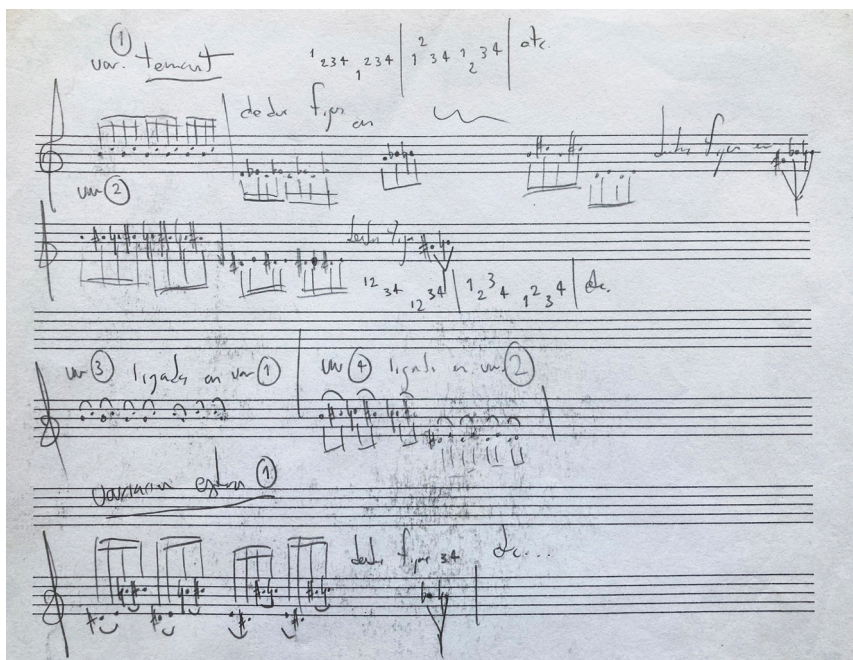 var. ① tenent
1 2 3 4 1 2 3 4 | 1 2 3 4 1 2 3 4 | etc.
dedos fijos en
dedos fijos en
var ②
dedos fijos
1 2 3 4 1 2 3 4 | 1 2 3 4 1 2 3 4 | etc.
var ③ ligados en var ① var ④ ligados en var ②
Variación extra ①
dedos fijos 34 etc...